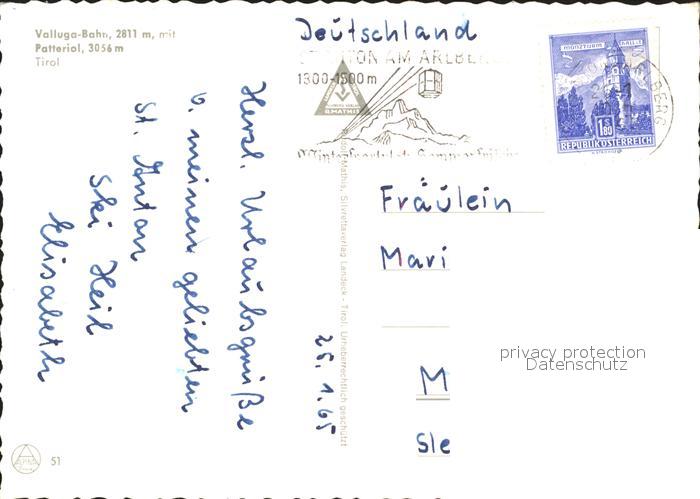 Valluga-Bahn, 2811 m, mit
Patteriol, 3056 m
Tirol
Deutschland
ANTON AM ARLBERG
1300-1500 m
MÜNZTURM HALL
1 S 80
REPUBLIK ÖSTERREICH
Fräulein
Mari
M
Sle
privacy protection
Datenschutz
Herzl. Urlaubsgrüße
v. meinem geliebten
St. Anton
Ski Heil
Elisabeth
25. 1. 65
Mathis, Silvrettaverlag Landeck - Tirol. Urheberrechtlich geschützt
51